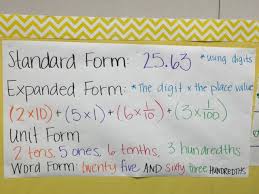 Standard Form: 25.63 *using digits
Expanded Form: *The digit x the place value
(2x10)+(5x1)+(6x1/10)+(3x1/100)
Unit Form
2 tens, 5 ones, 6 tenths, 3 hundredths
Word Form: twenty five AND sixty three HUNDREDTHS